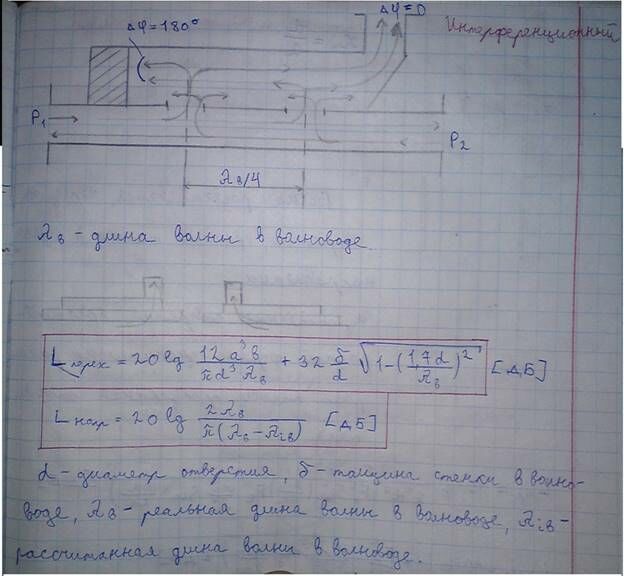 Δφ=180°
Δφ=0
Интерференционный
P₁
P₂
λв/4
λв - длина волны в волноводе
Lперех = 20 lg 12a³b/πd³λв + 32 δ/d √1-(1,7d/λв)² [дБ]
Lнапр = 20 lg 2λв/π(λв-λ1в) [дБ]
d - диаметр отверстия, δ - толщина стенки в волно-
воде, λв - реальная длина волны в волноводе, λ1в -
рассчитанная длина волны в волноводе.